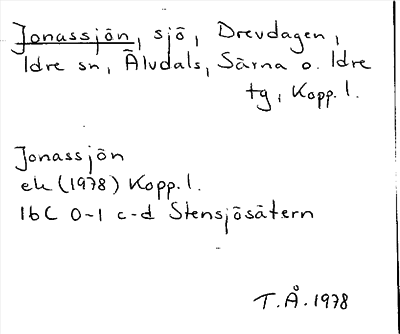 Jonassjön, sjö, Drevdagen,
Idre sn, Älvdals, Särna o. Idre
tg, Kopp. l.
Jonassjön
ek (1978) Kopp. l.
16C 0-1 c-d Stensjösätern
T.Å. 1978